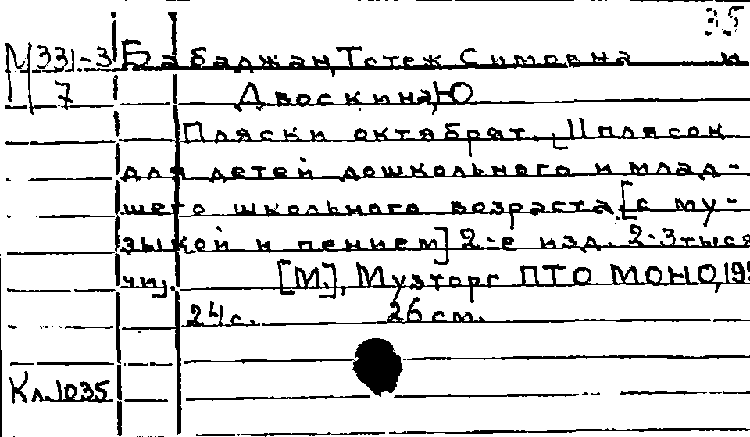 35
М 331-3 Бабаджан, Тотеж Симовна и
7 Двоскина, Ю
Пляски октябрат. 11 плясок
для детей дошкольного и млад-
шего школьного возраста [с му-
зыкой и пением] 2-е изд. 2-3 тыся
чи].
[М.], Музторг ПТО МОНО, 192
24 с. 26 см.
Кл. 1035